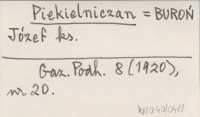 Piekielniczan = BUROŃ
Józef ks.
Gaz. Podh. 8 (1920),
nr 20.